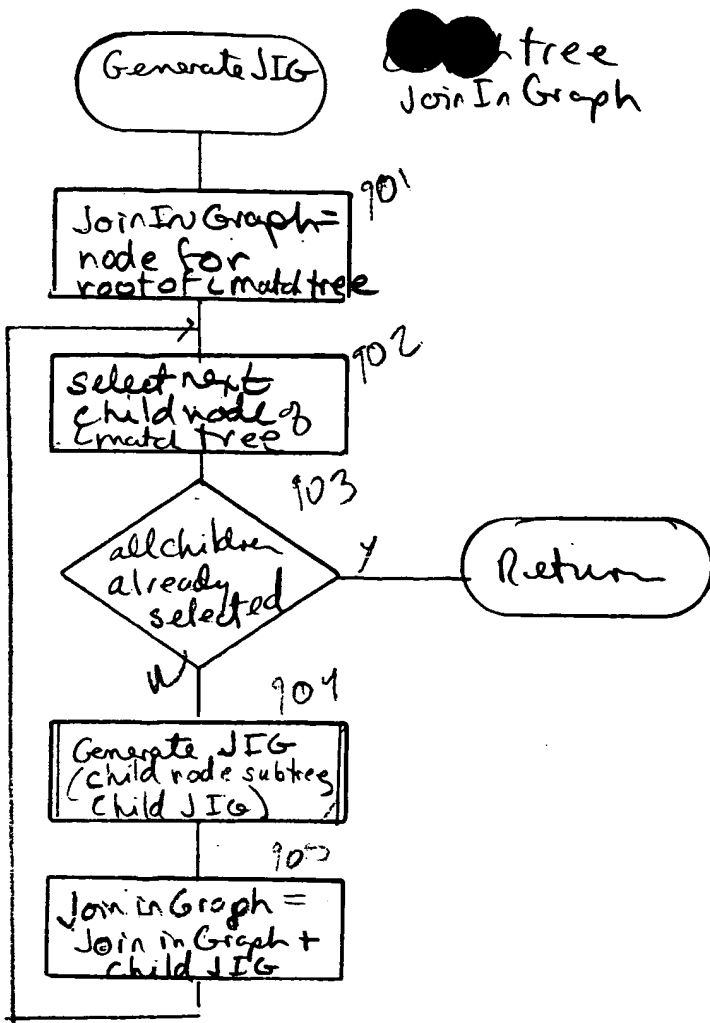 Generate JIG
tree
JoinInGraph
901
JoinInGraph=
node for
root of cmatch tree
902
select next
child node of
cmatch tree
903
all children
already
selected
Y
Return
N
904
Generate JIG
(child node subtree,
Child JIG)
905
Join in Graph =
Join in Graph +
child JIG